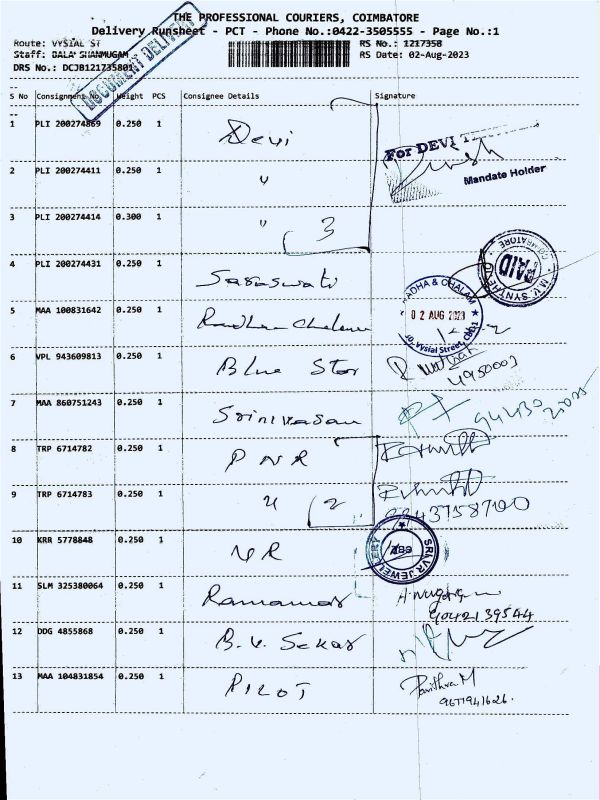 THE PROFESSIONAL COURIERS, COIMBATORE
Delivery Runsheet - PCT - Phone No.:0422-3505555 - Page No.:1
Route: VYSIAL ST RS No.: 1217358
Staff: BALA SHANMUGAM RS Date: 02-Aug-2023
DRS No.: DCJB121735801
DOCUMENT DELIVERY
S No Consignment No Weight PCS Consignee Details Signature
1 PLI 200274869 0.250 1 Devi
For DEVI
Mandate Holder
2 PLI 200274411 0.250 1 "
3 PLI 200274414 0.300 1 " 3
4 PLI 200274431 0.250 1 Saraswati
PAID
COIMBATORE
5 MAA 100831642 0.250 1 Radha Chalam
RADHA & CHALAM
02 AUG 2023
Vysial Street, CBE-1
6 VPL 943609813 0.250 1 Blue Star
4950003
7 MAA 860751243 0.250 1 Srinivasan
8 TRP 6714782 0.250 1 PNR
9 TRP 6714783 0.250 1 " 2
10 KRR 5778848 0.250 1 VR
SRI VR JEWELLERY
11 SLM 325380064 0.250 1
9042139544
12 DDG 4855868 0.250 1 B.V. Sekar
13 MAA 104831854 0.250 1 PILOT Pavithra M